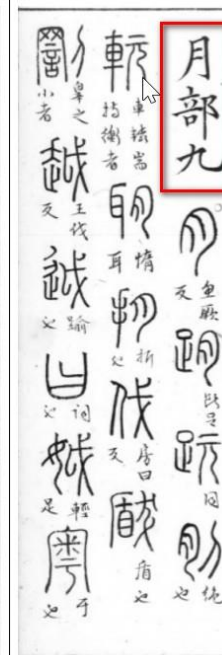 月部九 月 魚厥反 跀 同 刖 絶也
軏 車轅耑持衡者 惰耳 抈 折也 伐 房曰反 瞂 盾也
罰 辠之小者 越 王伐反 踰也 曰 詞也 娍 輕足 粵 于也